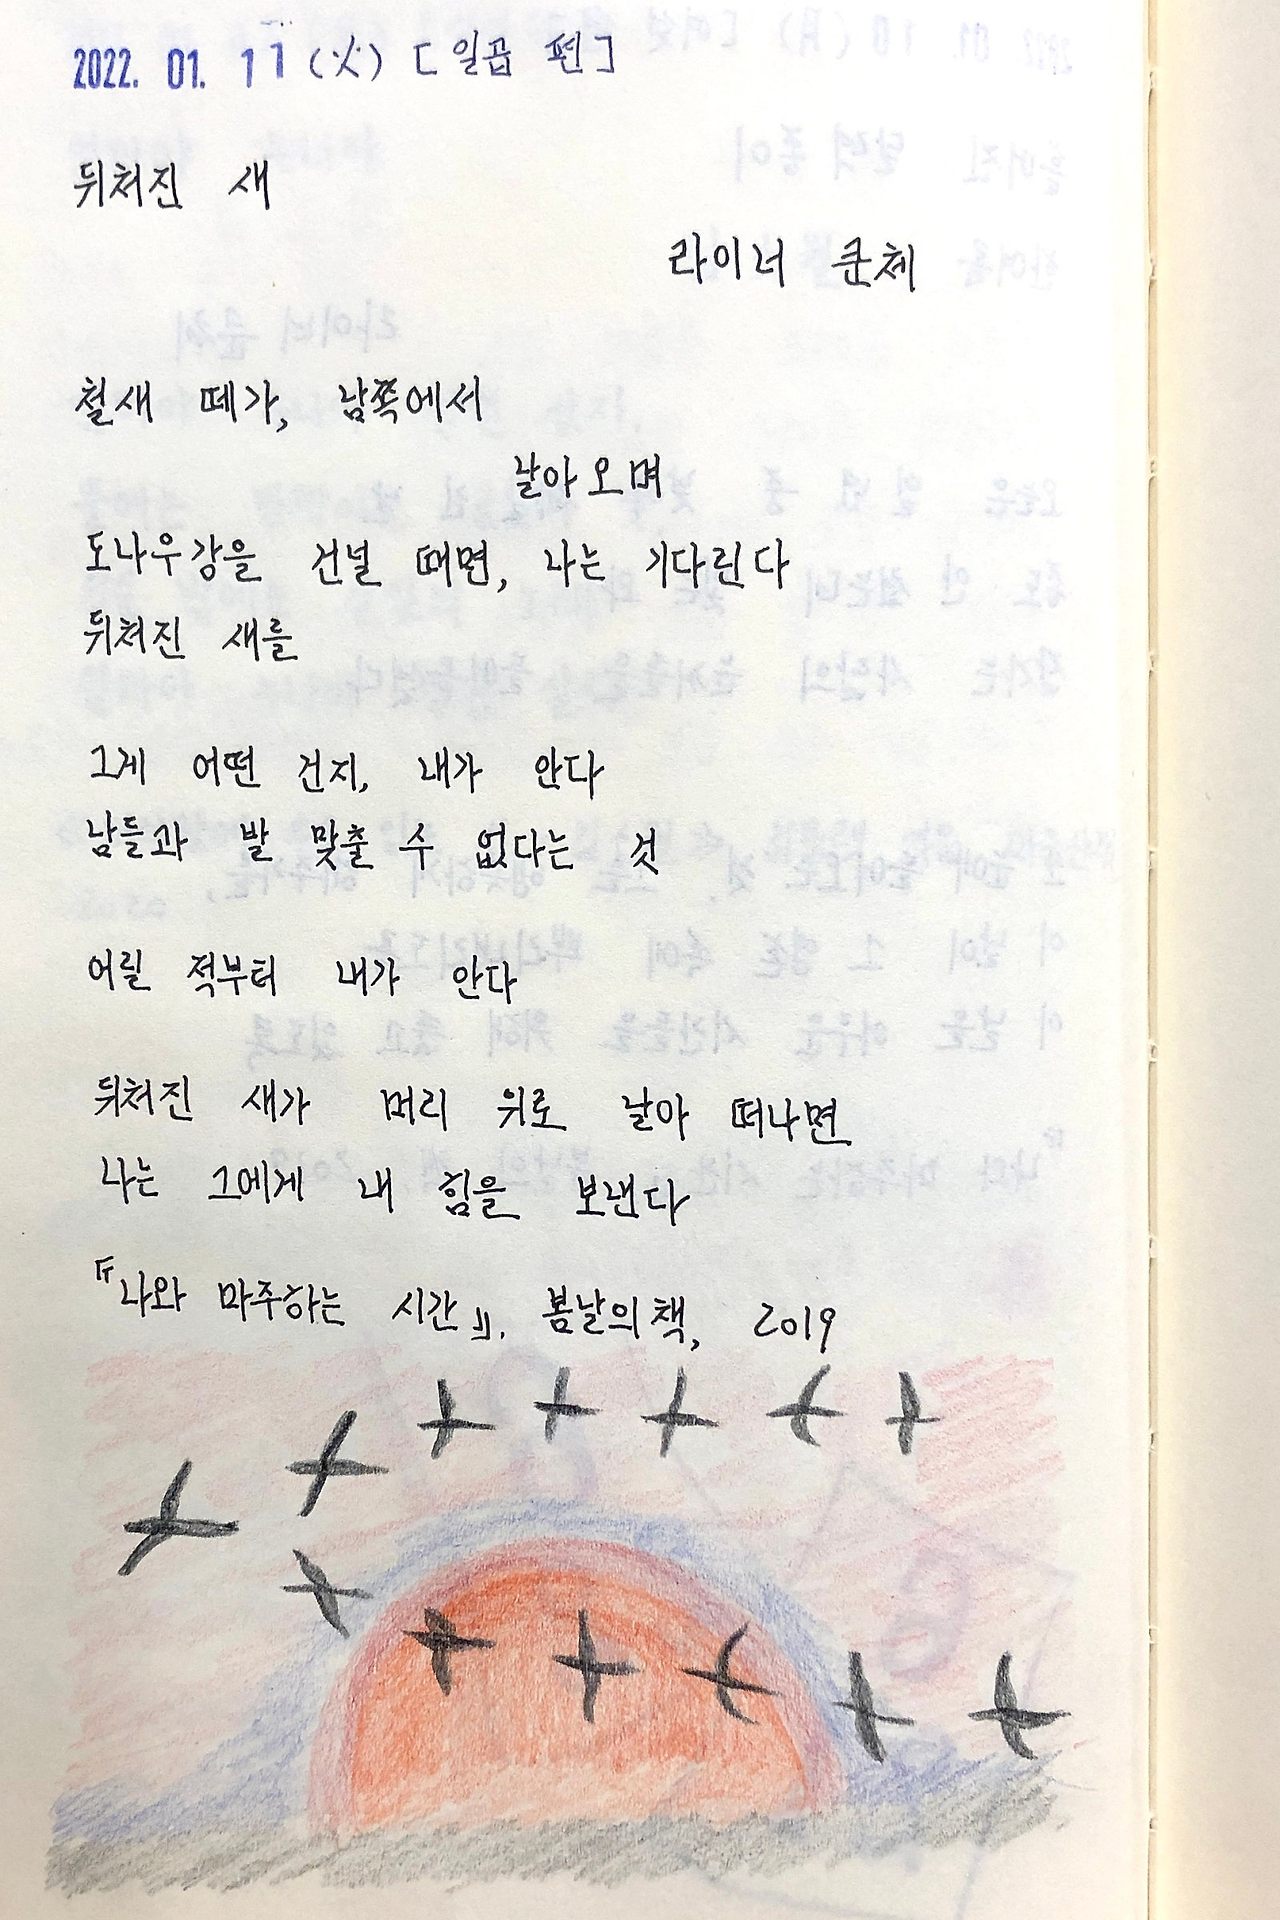 2022. 01. 11 (火) [일곱 편]
뒤처진 새
라이너 쿤체
철새 떼가, 남쪽에서
날아오며
도나우강을 건널 때면, 나는 기다린다
뒤처진 새를
그게 어떤 건지, 내가 안다
남들과 발 맞출 수 없다는 것
어릴 적부터 내가 안다
뒤처진 새가 머리 위로 날아 떠나면
나는 그에게 내 힘을 보낸다
『나와 마주하는 시간』, 봄날의책, 2019